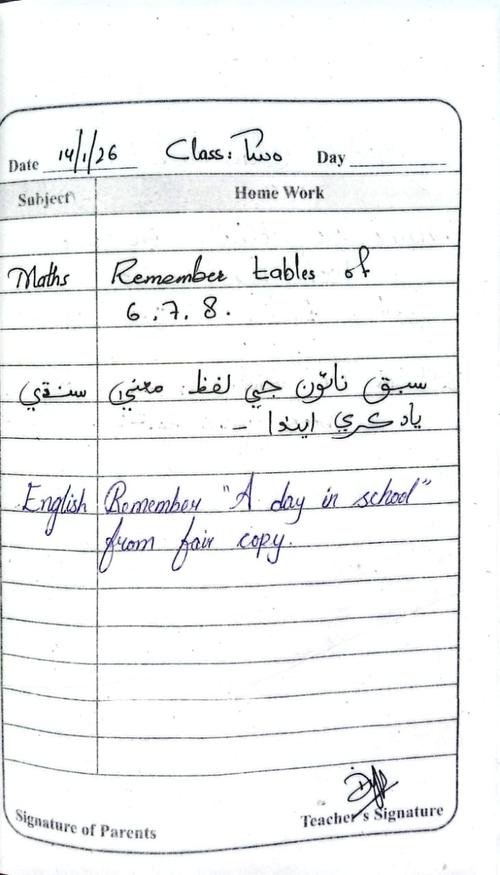 Date 14/1/26 Class: Two Day
Subject Home Work
Maths Remember tables of
6, 7, 8.
سنڌي سبق نائون جي لفظ معنيٰ
ياد ڪري ايندا -
English Remember "A day in school"
from fair copy.
Signature of Parents Teacher's Signature